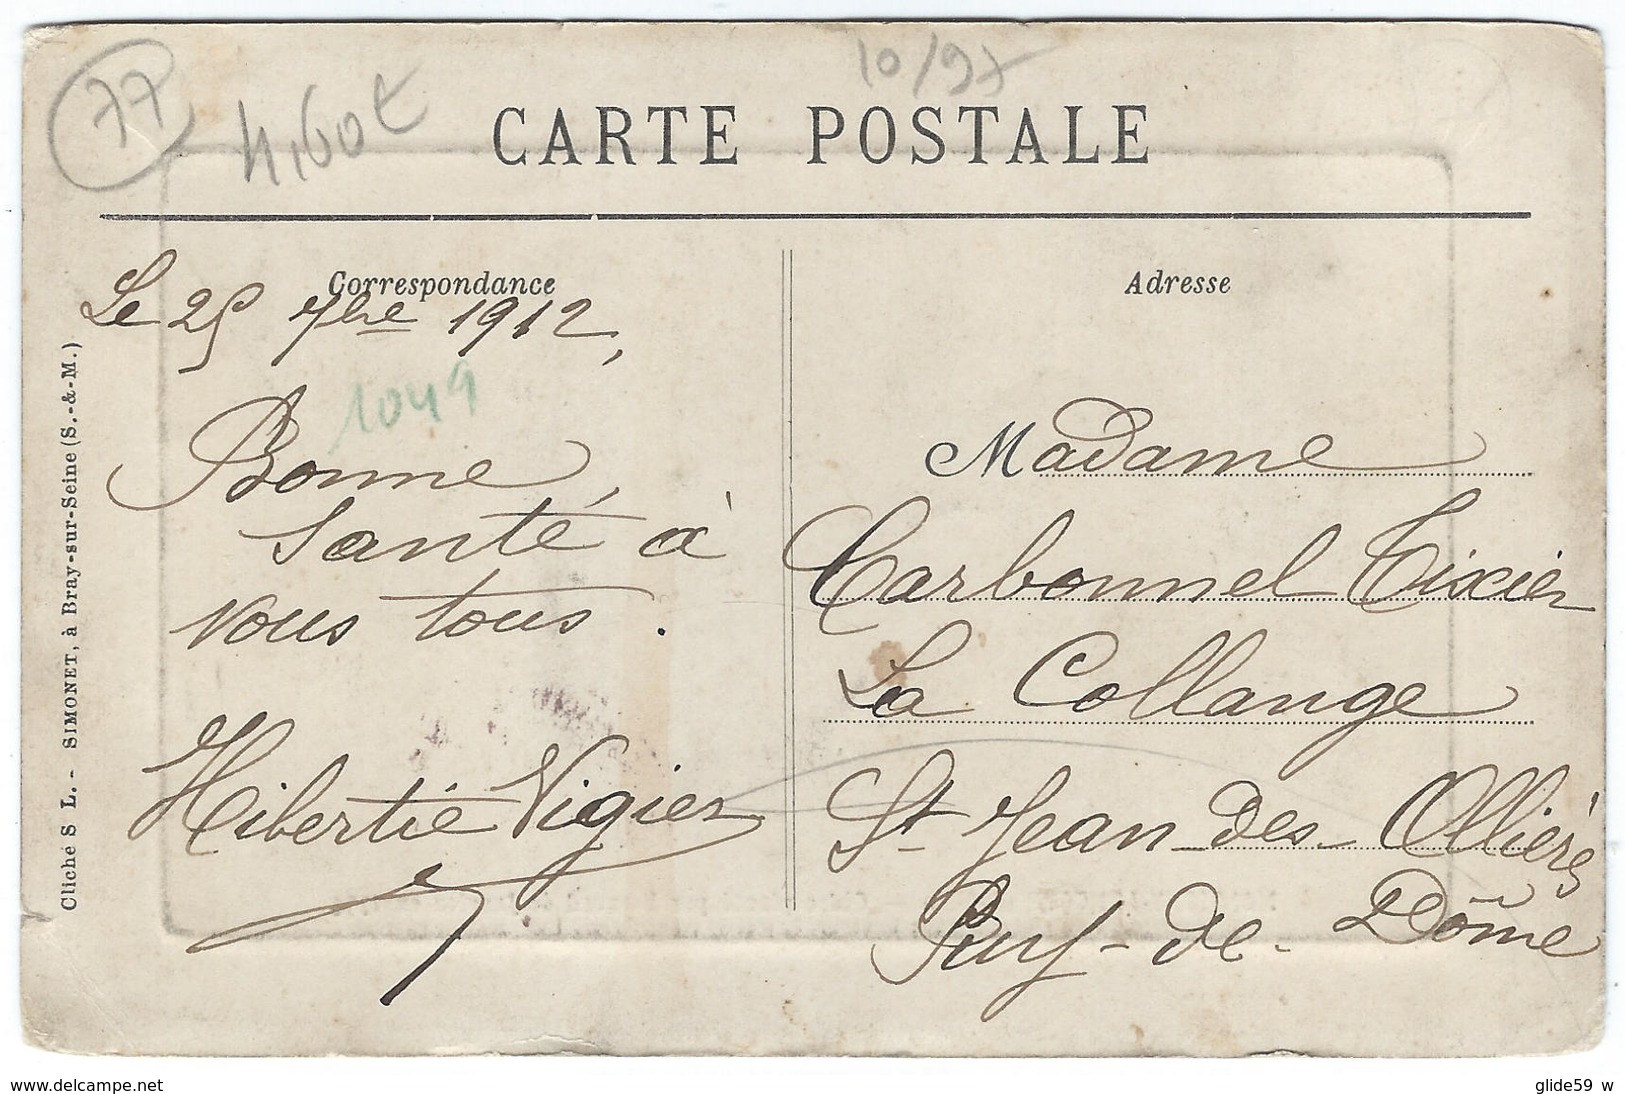 77
4,60€
10/97
CARTE POSTALE
Correspondance
Adresse
Le 25 7bre 1912,
1049
Bonne
santé à
vous tous.
Hibertie Vigier
Madame
Carbonnel Tixier
La Collange
St Jean-des-Ollières
Puy-de-Dôme
Cliché S L. - SIMONET, à Bray-sur-Seine (S.-&-M.)
www.delcampe.net
glide59 w